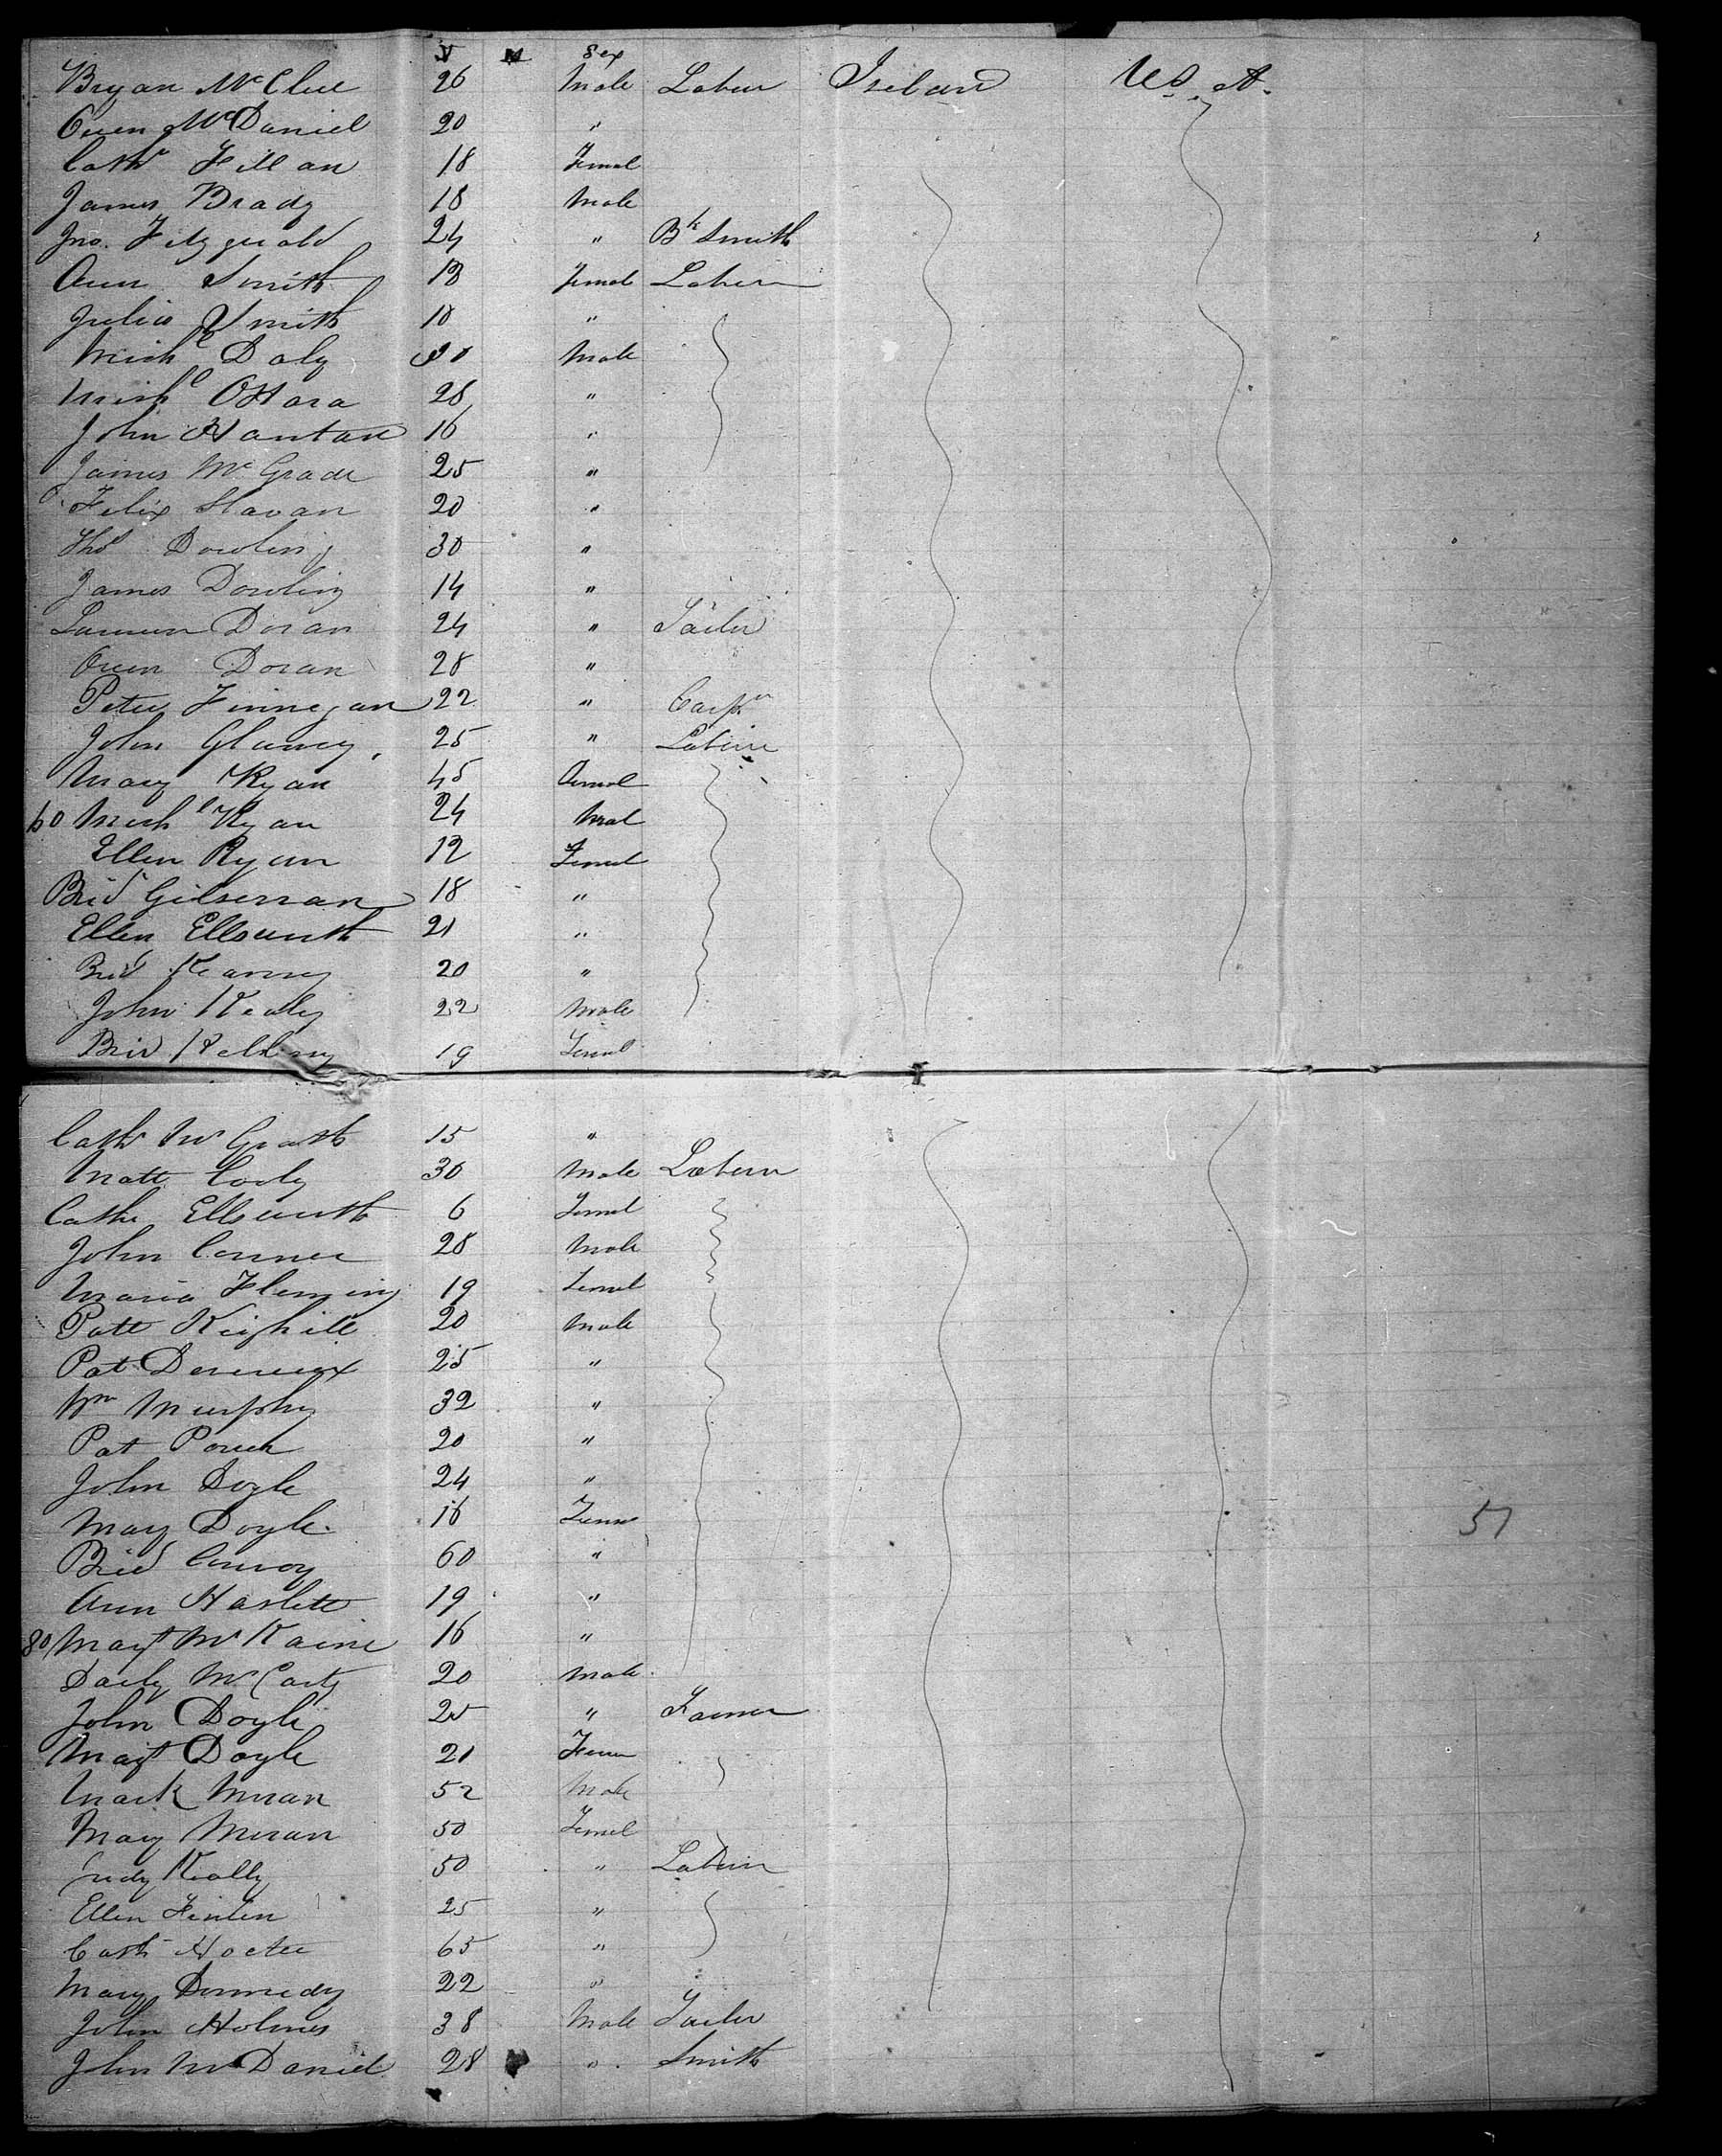 Y M Sex
Bryan McClue 26 Male Labur Ireland U.S.A.
Owen McDaniel 20 "
Cathe Fillan 18 Femal
James Brady 18 Male
Jno. Fitzgerald 24 " Bk Smith
Ann Smith 18 Femal Laburer
Julia Smith 18 "
Michl Daly Male
Michl OHara 28 "
John 16 "
James McGrade 25 "
Felix Slavan 20 "
Thos Dowling 30 "
James Dowling 14 "
Doran 24 " Tailor
Owen Doran 28 "
Peter Finnegan 22 " Carpr
John Glancy 25 " Labur
Mary Ryan 45 Femal
60 Michl Ryan 24 Mal
Ellen Ryan 12 Femal
Brid Gilserran 18 "
Ellen Ellsworth 21 "
Brid Kearney 20 "
John Kealy 22 Male
Brid 19 Femal
Cath McGrath 15 "
Matt Cody 30 Male Laburer
Cathe Ellsworth 6 Femal
John Conner 28 Male
Maria Fleming 19 Femal
Patt Keighill 20 Male
Pat Devereux 25 "
Wm Murphy 32 "
Pat Power 20 "
John Doyle 24 "
Mary Doyle 16 Femal
Brid Conroy 60 "
Ann Haslett 19 "
80 Magt McKaine 16 "
McCarty 20 Male
John Doyle 25 " Farmer
Magt Doyle 21 Fem
Mark Moran 52 Male
Mary Moran 50 Femel
Judy Kealy 50 " Labur
Ellen Finlen 25 "
Cath Hoctor 65 "
Mary 22 "
John Holmes 38 Male Tailor
John McDaniel 28 " Smith
51